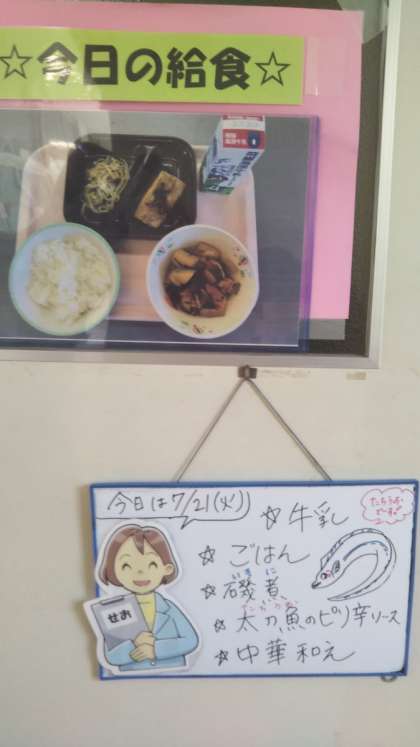 ☆今日の給食☆
今日は7/21(火)
☆牛乳
☆ごはん
いそに
☆磯煮
☆太刀魚のピリ辛ソース
☆中華和え
せお